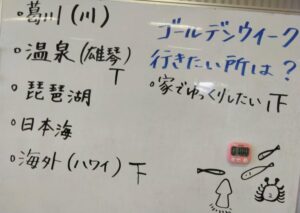 ゴールデンウイーク
行きたい所は？
。葛川（川）
。温泉（雄琴）
T
。琵琶湖
。日本海
。海外（ハワイ）下
。家でゆっくりしたい 正